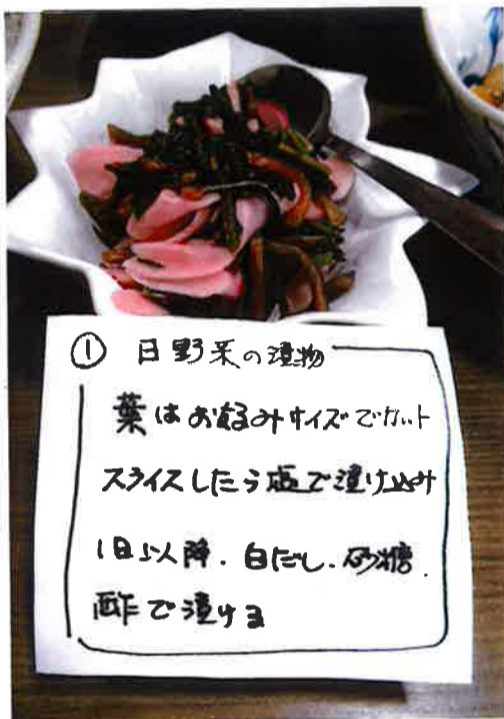 ① 日野菜の漬物
葉はお好みサイズでカット
スライスしたら塩で漬け込み
1日以降、白だし、砂糖、
酢で漬ける